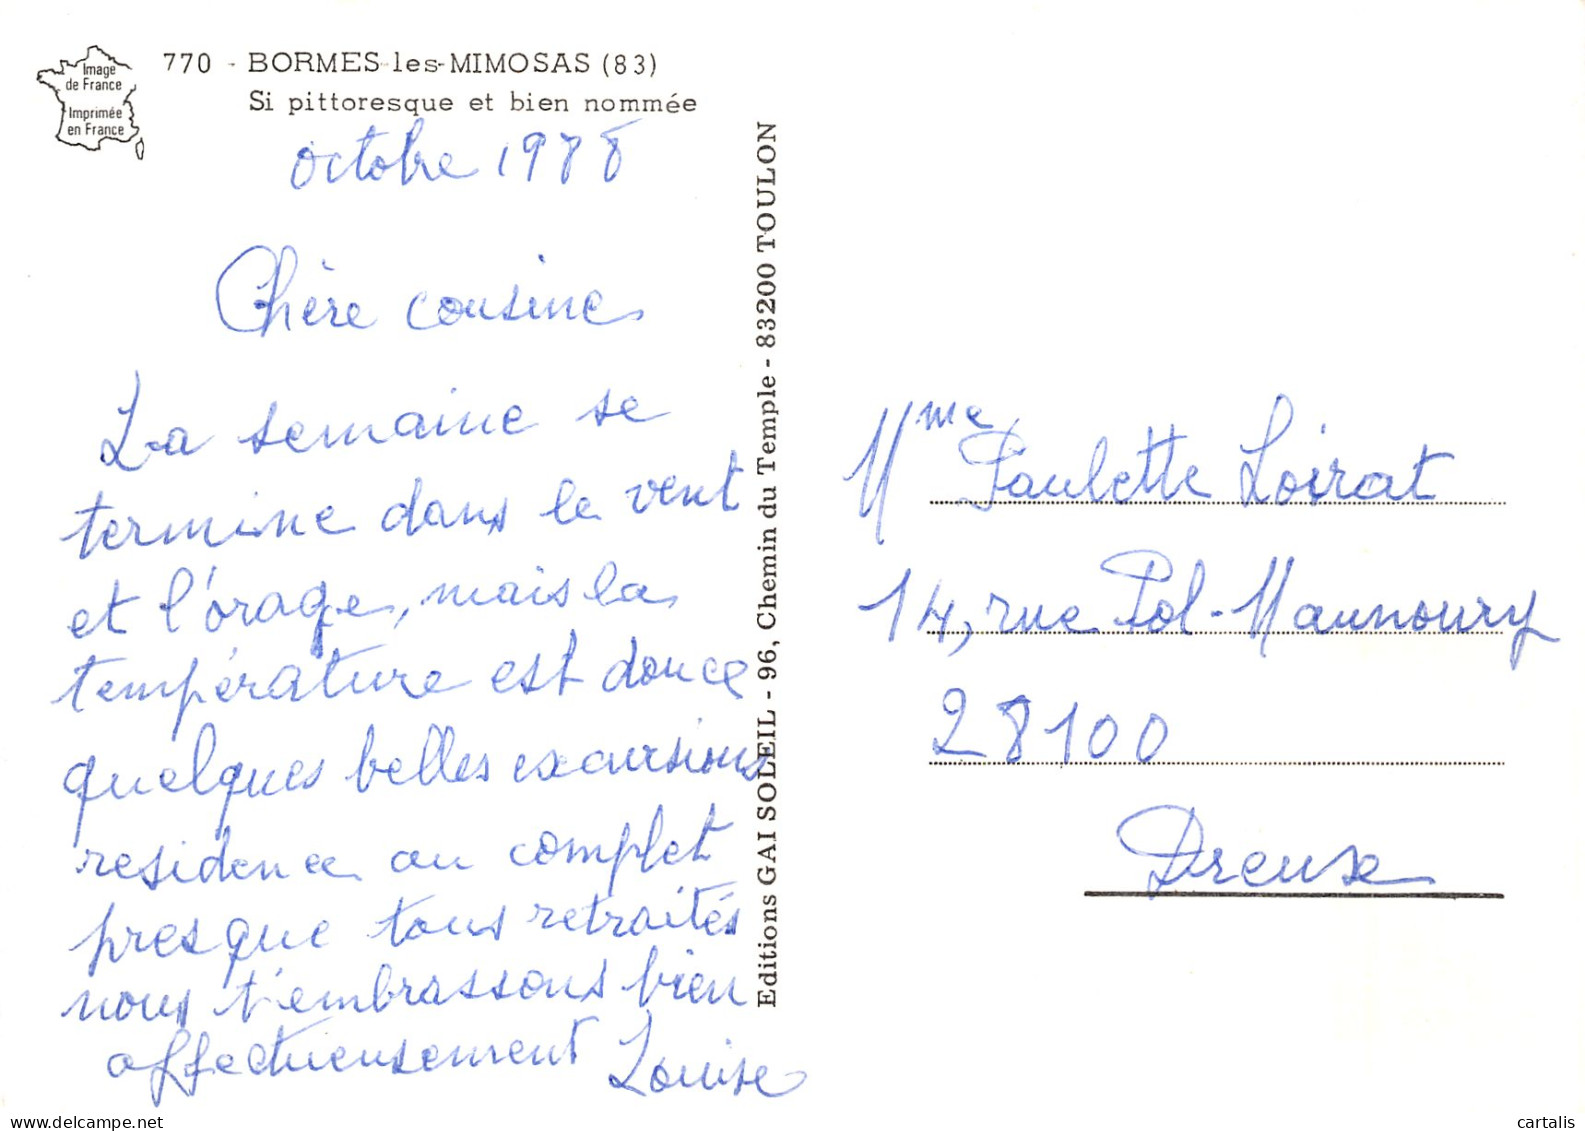 Image
de France
Imprimée
en France
770 - BORMES-les-MIMOSAS (83)
Si pittoresque et bien nommée
octobre 1988
Chère cousine
La semaine se
termine dans le vent
et l'orage, mais la
température est douce
quelques belles excursions
residence au complet
presque tous retraités
nous t'embrassons bien
affectueusement Louise
Editions GAI SOLEIL - 96, Chemin du Temple - 83200 TOULON
Mme Paulette Loirat
14, rue Pol-Maunoury
28100
Dreux
cartalis
delcampe.net